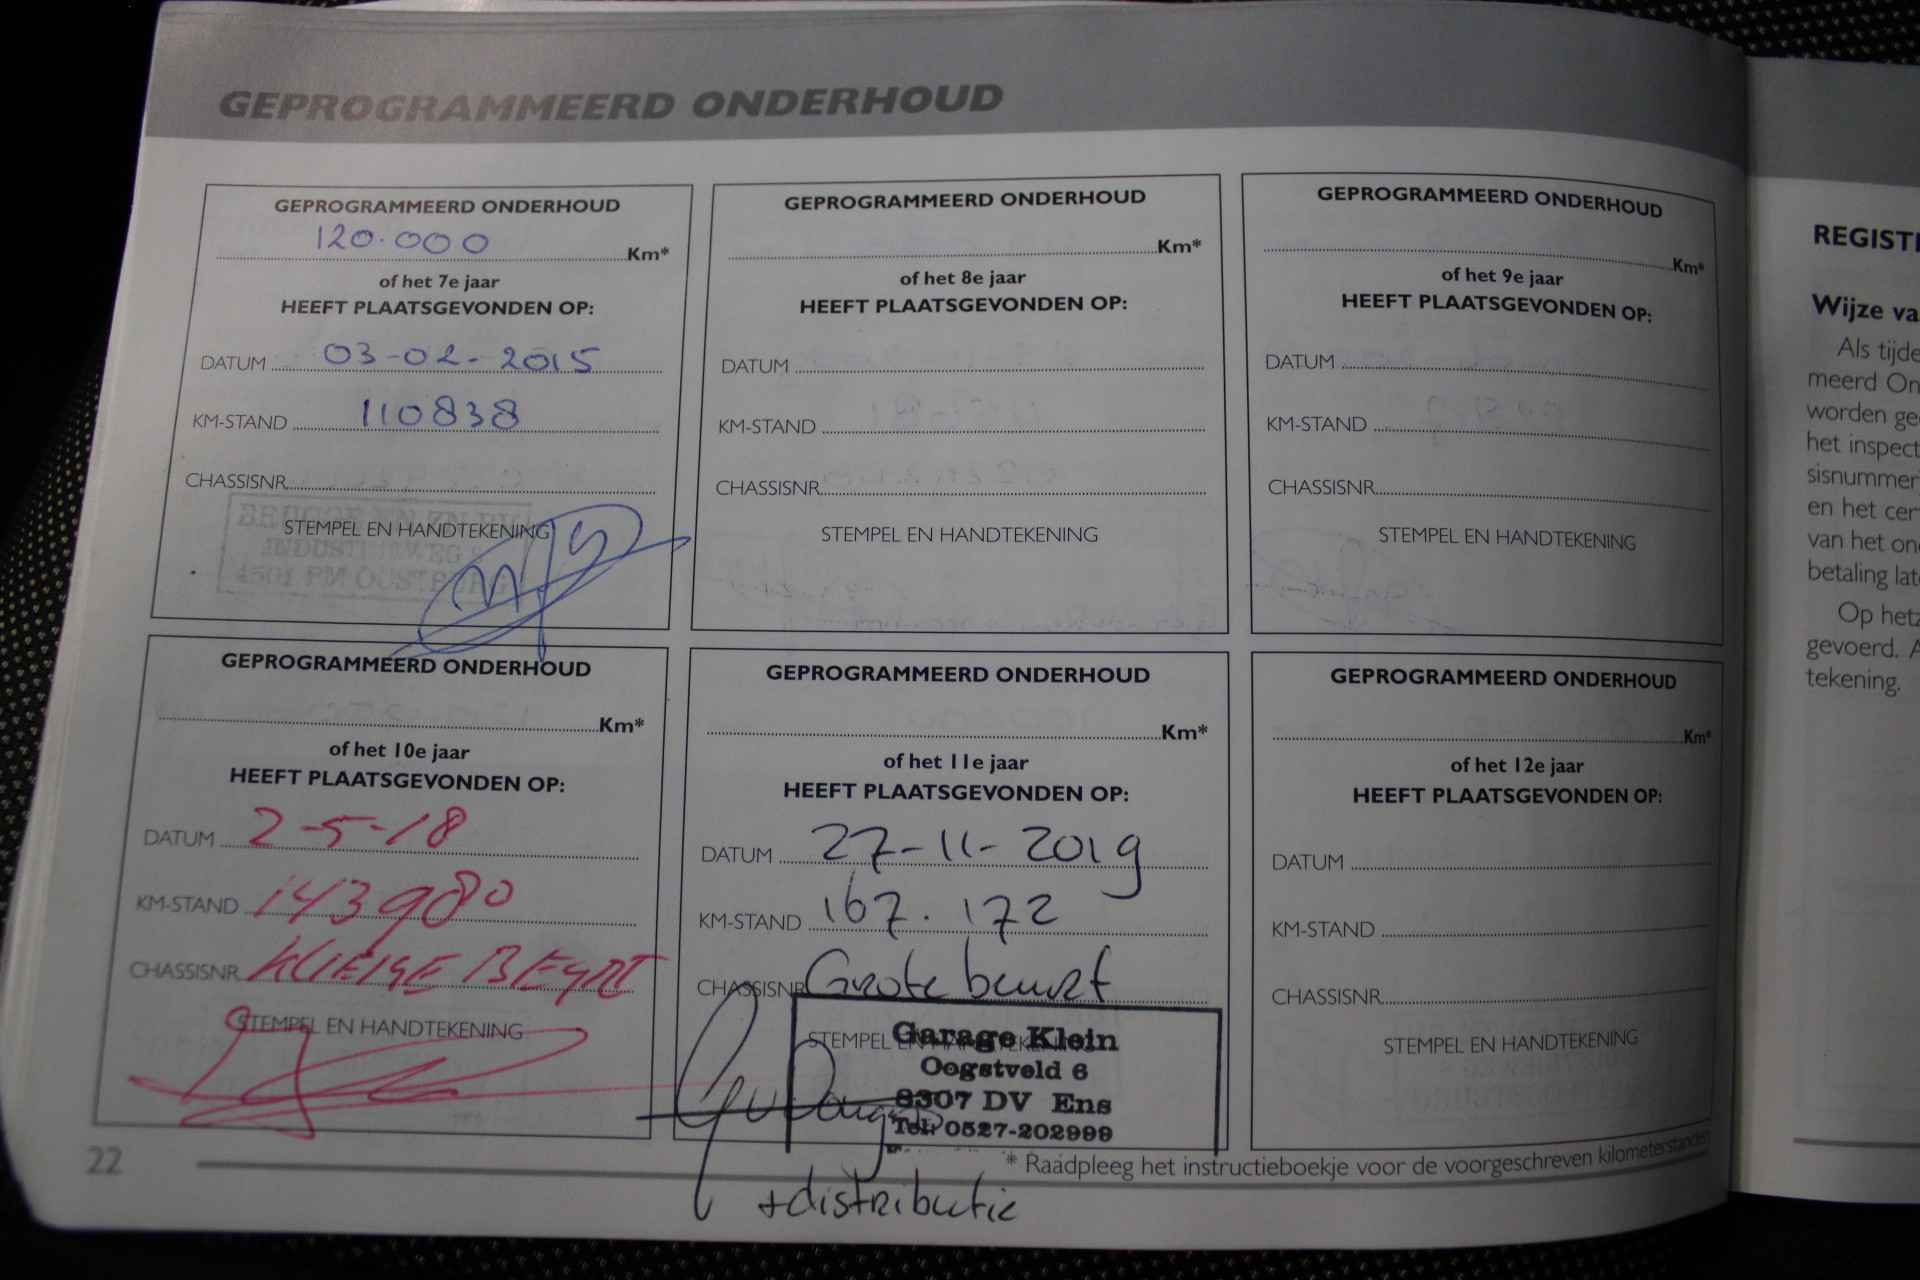 GEPROGRAMMEERD ONDERHOUD
GEPROGRAMMEERD ONDERHOUD
120.000 Km*
of het 7e jaar
HEEFT PLAATSGEVONDEN OP:
DATUM 03-02-2015
KM-STAND 110838
CHASSISNR.
STEMPEL EN HANDTEKENING
GEPROGRAMMEERD ONDERHOUD
Km*
of het 8e jaar
HEEFT PLAATSGEVONDEN OP:
DATUM
KM-STAND
CHASSISNR.
STEMPEL EN HANDTEKENING
GEPROGRAMMEERD ONDERHOUD
Km*
of het 9e jaar
HEEFT PLAATSGEVONDEN OP:
DATUM
KM-STAND
CHASSISNR.
STEMPEL EN HANDTEKENING
GEPROGRAMMEERD ONDERHOUD
Km*
of het 10e jaar
HEEFT PLAATSGEVONDEN OP:
DATUM 2-5-18
KM-STAND 143980
CHASSISNR. 
STEMPEL EN HANDTEKENING
GEPROGRAMMEERD ONDERHOUD
Km*
of het 11e jaar
HEEFT PLAATSGEVONDEN OP:
DATUM 27-11-2019
KM-STAND 167.172
CHASSISNR Grote beurt
STEMPEL EN HANDTEKENING
Garage Klein
Oogstveld 6
8307 DV Ens
Tel: 0527-202999
+distributie
GEPROGRAMMEERD ONDERHOUD
Km*
of het 12e jaar
HEEFT PLAATSGEVONDEN OP:
DATUM
KM-STAND
CHASSISNR.
STEMPEL EN HANDTEKENING
22
* Raadpleeg het instructieboekje voor de voorgeschreven kilometerstanden
REGISTR
Wijze va
Als tijde
meerd On
worden ge
het inspect
sisnummer
en het cer
van het on
betaling lat
Op het
gevoerd. A
tekening.